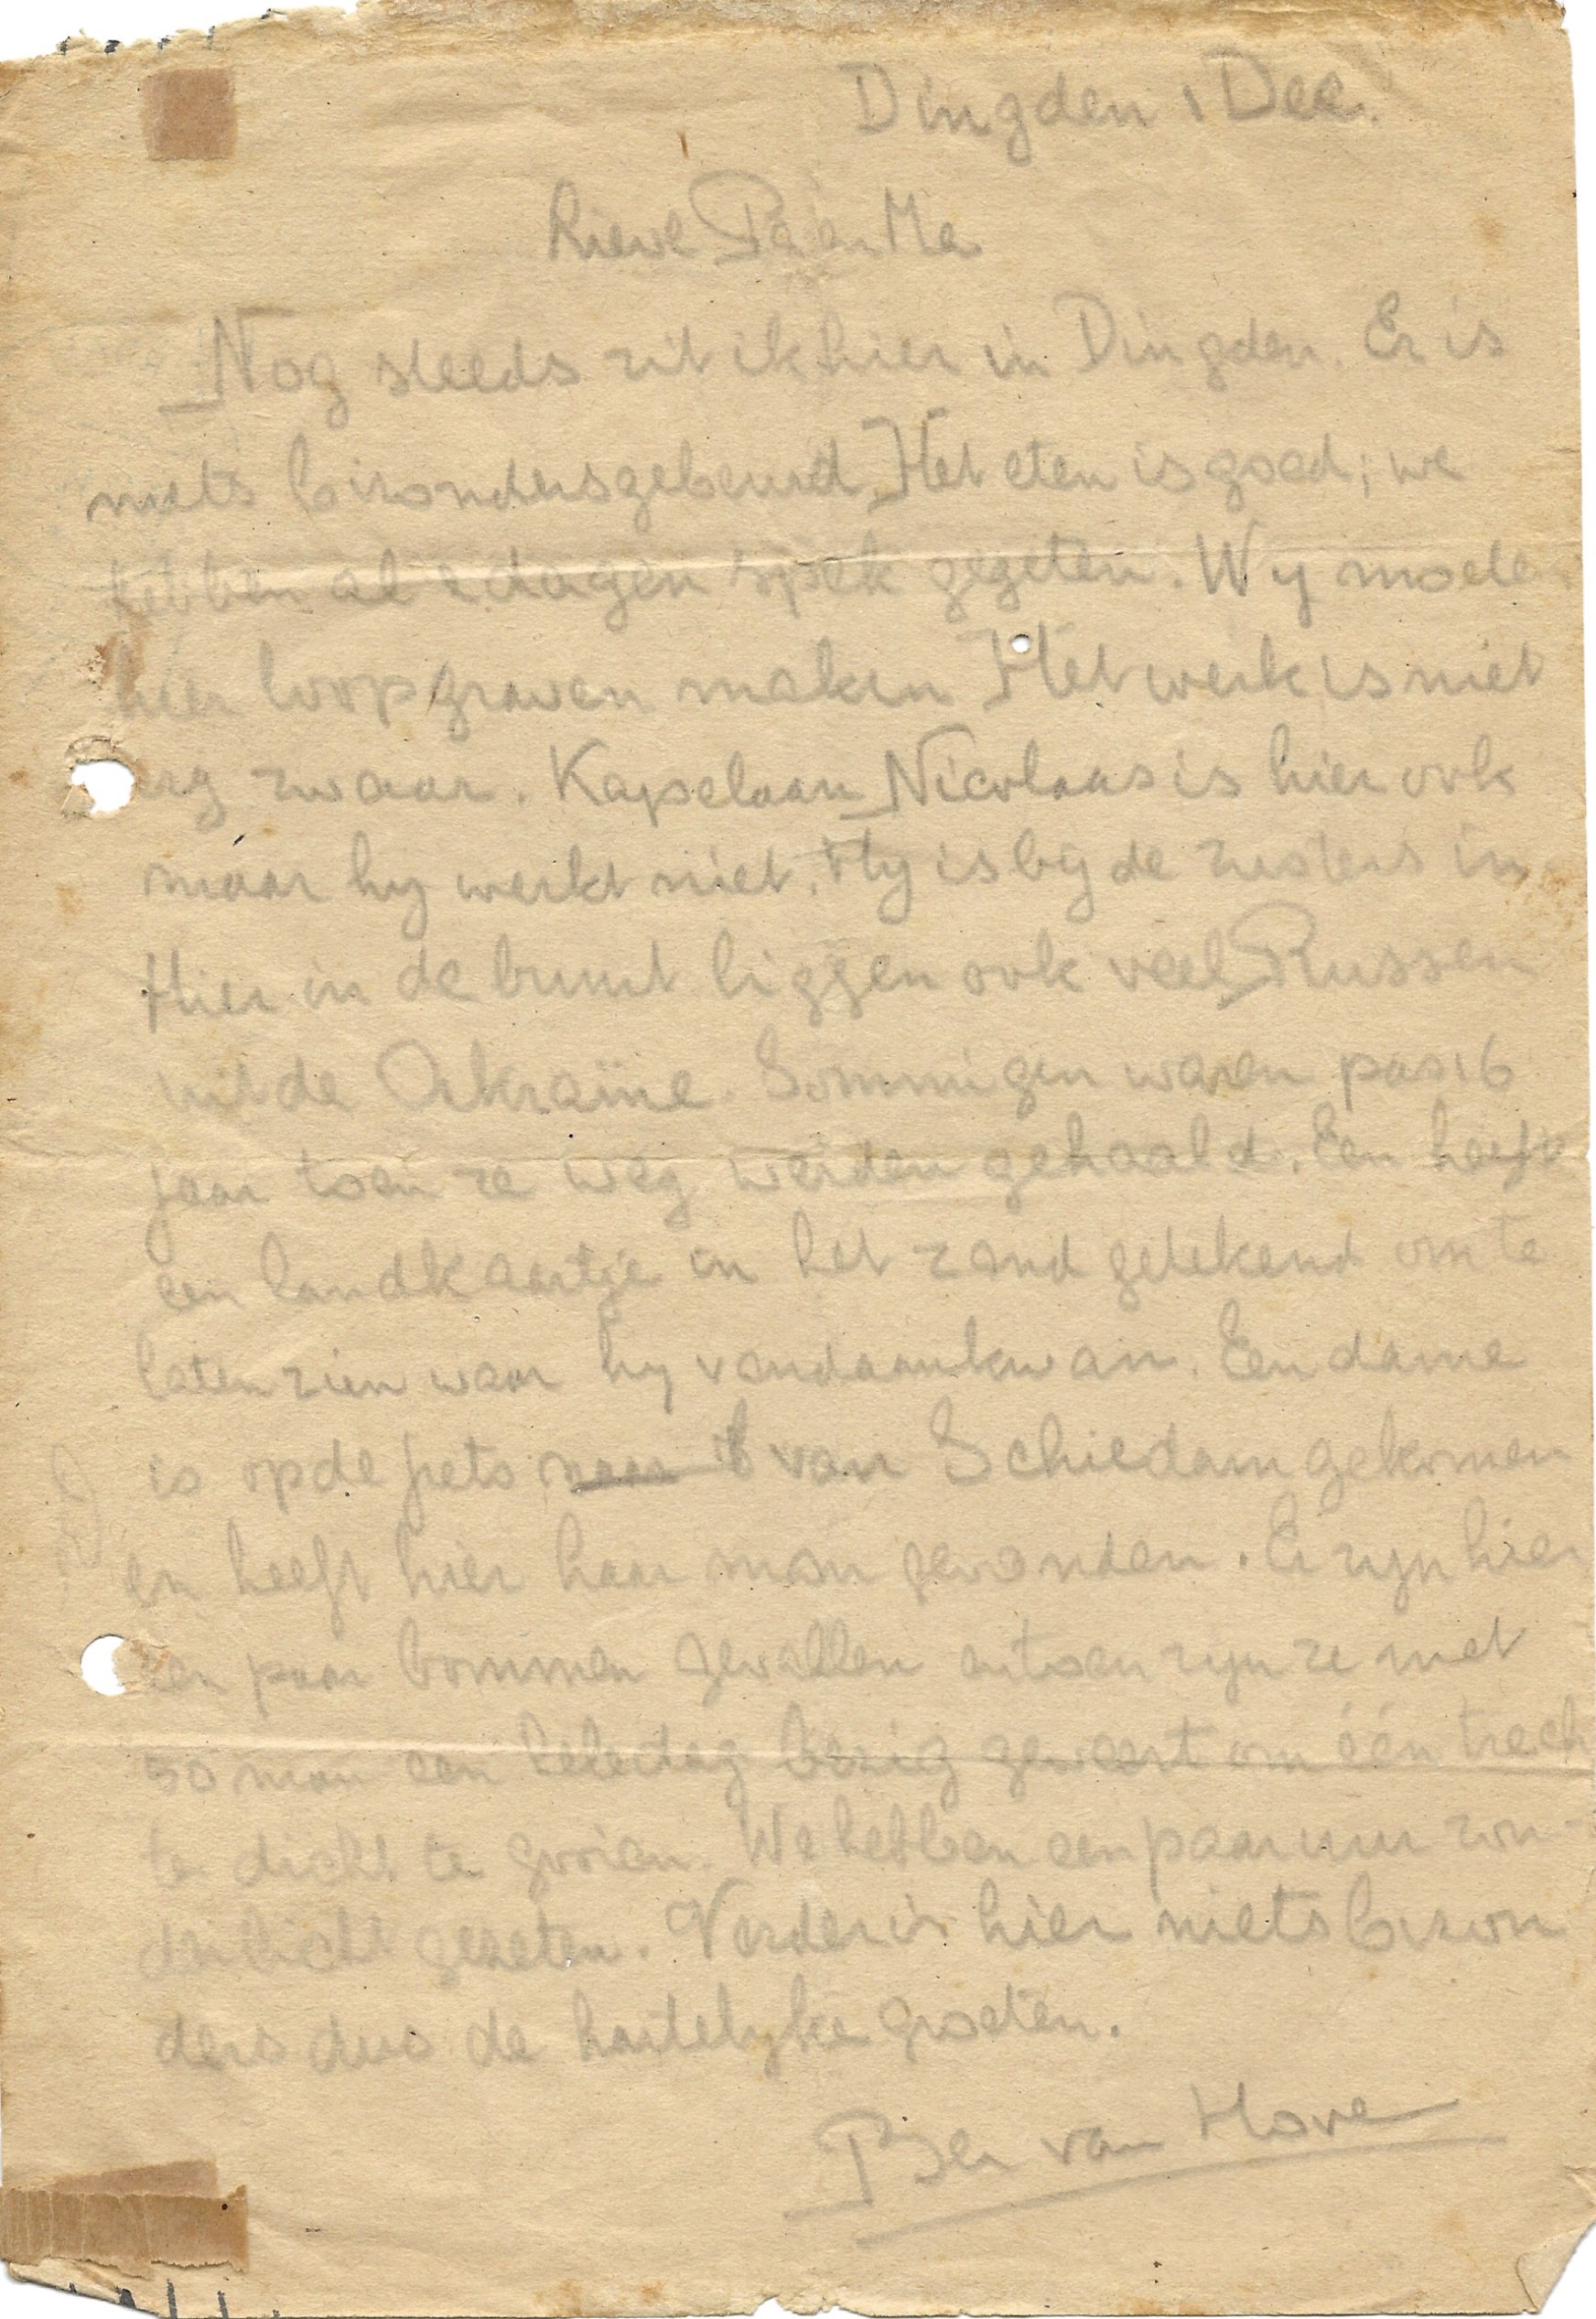 Dingden 1 Dec.
Lieve Pa en Ma
Nog steeds zit ik hier in Dingden. Er is
niets bizonders gebeurd. Het eten is goed; we
hebben al 2 dagen spek gegeten. Wy moete
hier loopgraven maken Het werk is niet
erg zwaar. Kapelaan Nicolaas is hier ook
maar hy werkt niet. Hy is by de zusters in
Hier in de buurt liggen ook veel Russen
uit de Oekraïne. Sommigen waren pas 16
jaar toen ze weg werden gehaald. Een heeft
een landkaartje in het zand getekend om te
laten zien waar hy vandaankwam. Een dame
is op de fiets naar van Schiedam gekomen
en heeft hier haar man gevonden. Er zyn hier
een paar bommen gevallen en toen zyn ze met
50 man een heledag bezig geweest om één trech
ter dicht te gooien. We hebben een paar uur zon-
der licht gezeten. Verder is hier niets bizon
ders dus de hartelyke groeten.
Ben van Hove